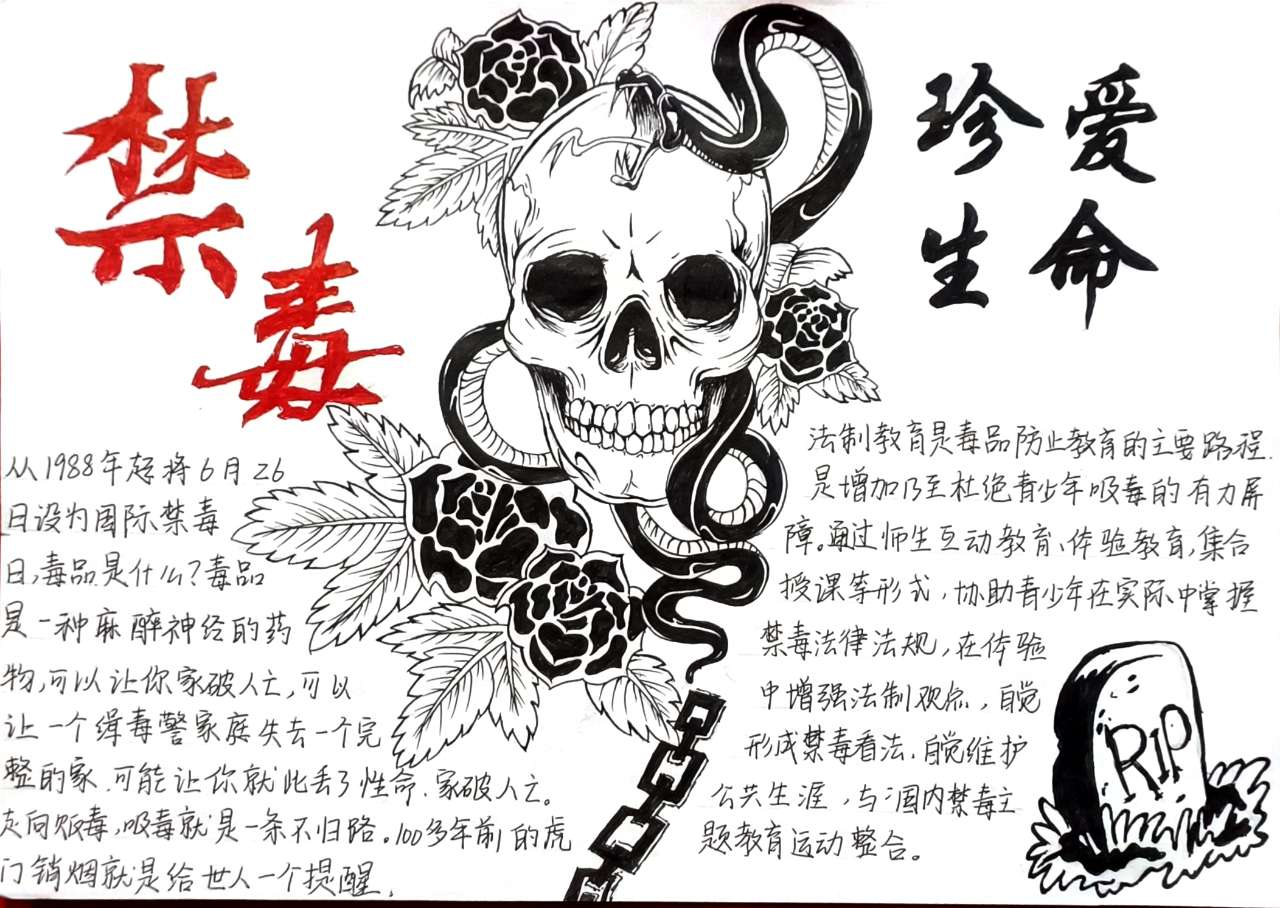 禁毒
珍爱
生命
从1988年起将6月26
日设为国际禁毒
日,毒品是什么?毒品
是一种麻醉神经的药
物,可以让你家破人亡,可以
让一个缉毒警家庭失去一个完
整的家.可能让你就此丢了性命.家破人亡。
走向贩毒,吸毒就是一条不归路。100多年前的虎
门销烟就是给世人一个提醒.
法制教育是毒品防止教育的主要路程.
是增加乃至杜绝青少年吸毒的有力屏
障。通过师生互动教育、体验教育,集合
授课等形式,协助青少年在实际中掌握
禁毒法律法规,在体验
中增强法制观点,自觉
形成禁毒看法.自觉维护
公共生涯,与国内禁毒主
题教育运动整合。
RIP